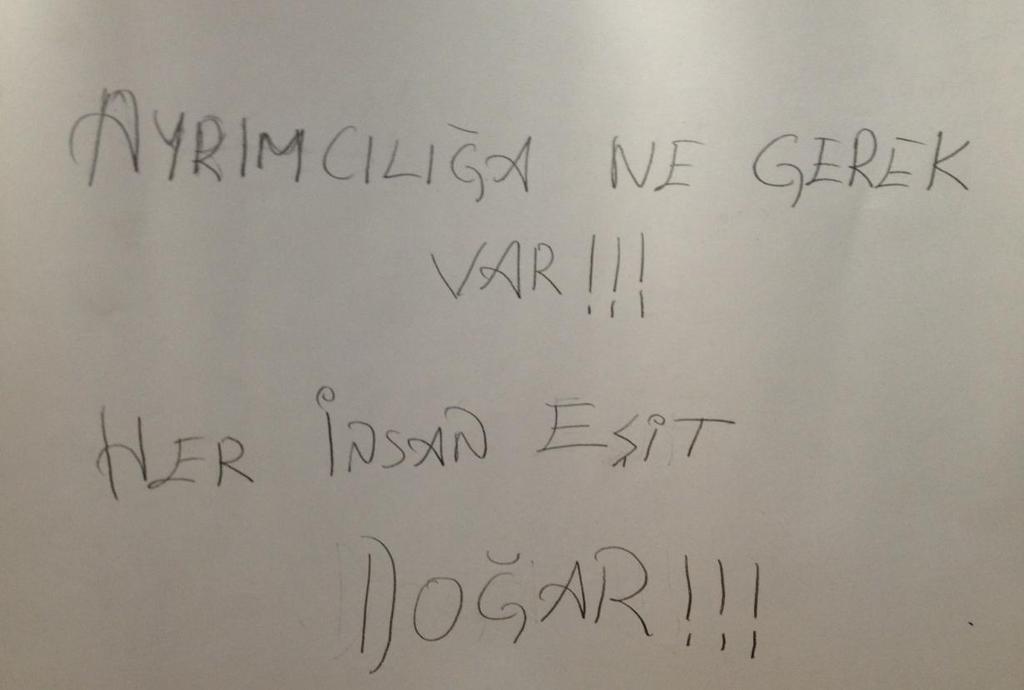 AYRIMCILIĞA NE GEREK
VAR!!!
HER İNSAN EŞİT
DOĞAR!!!